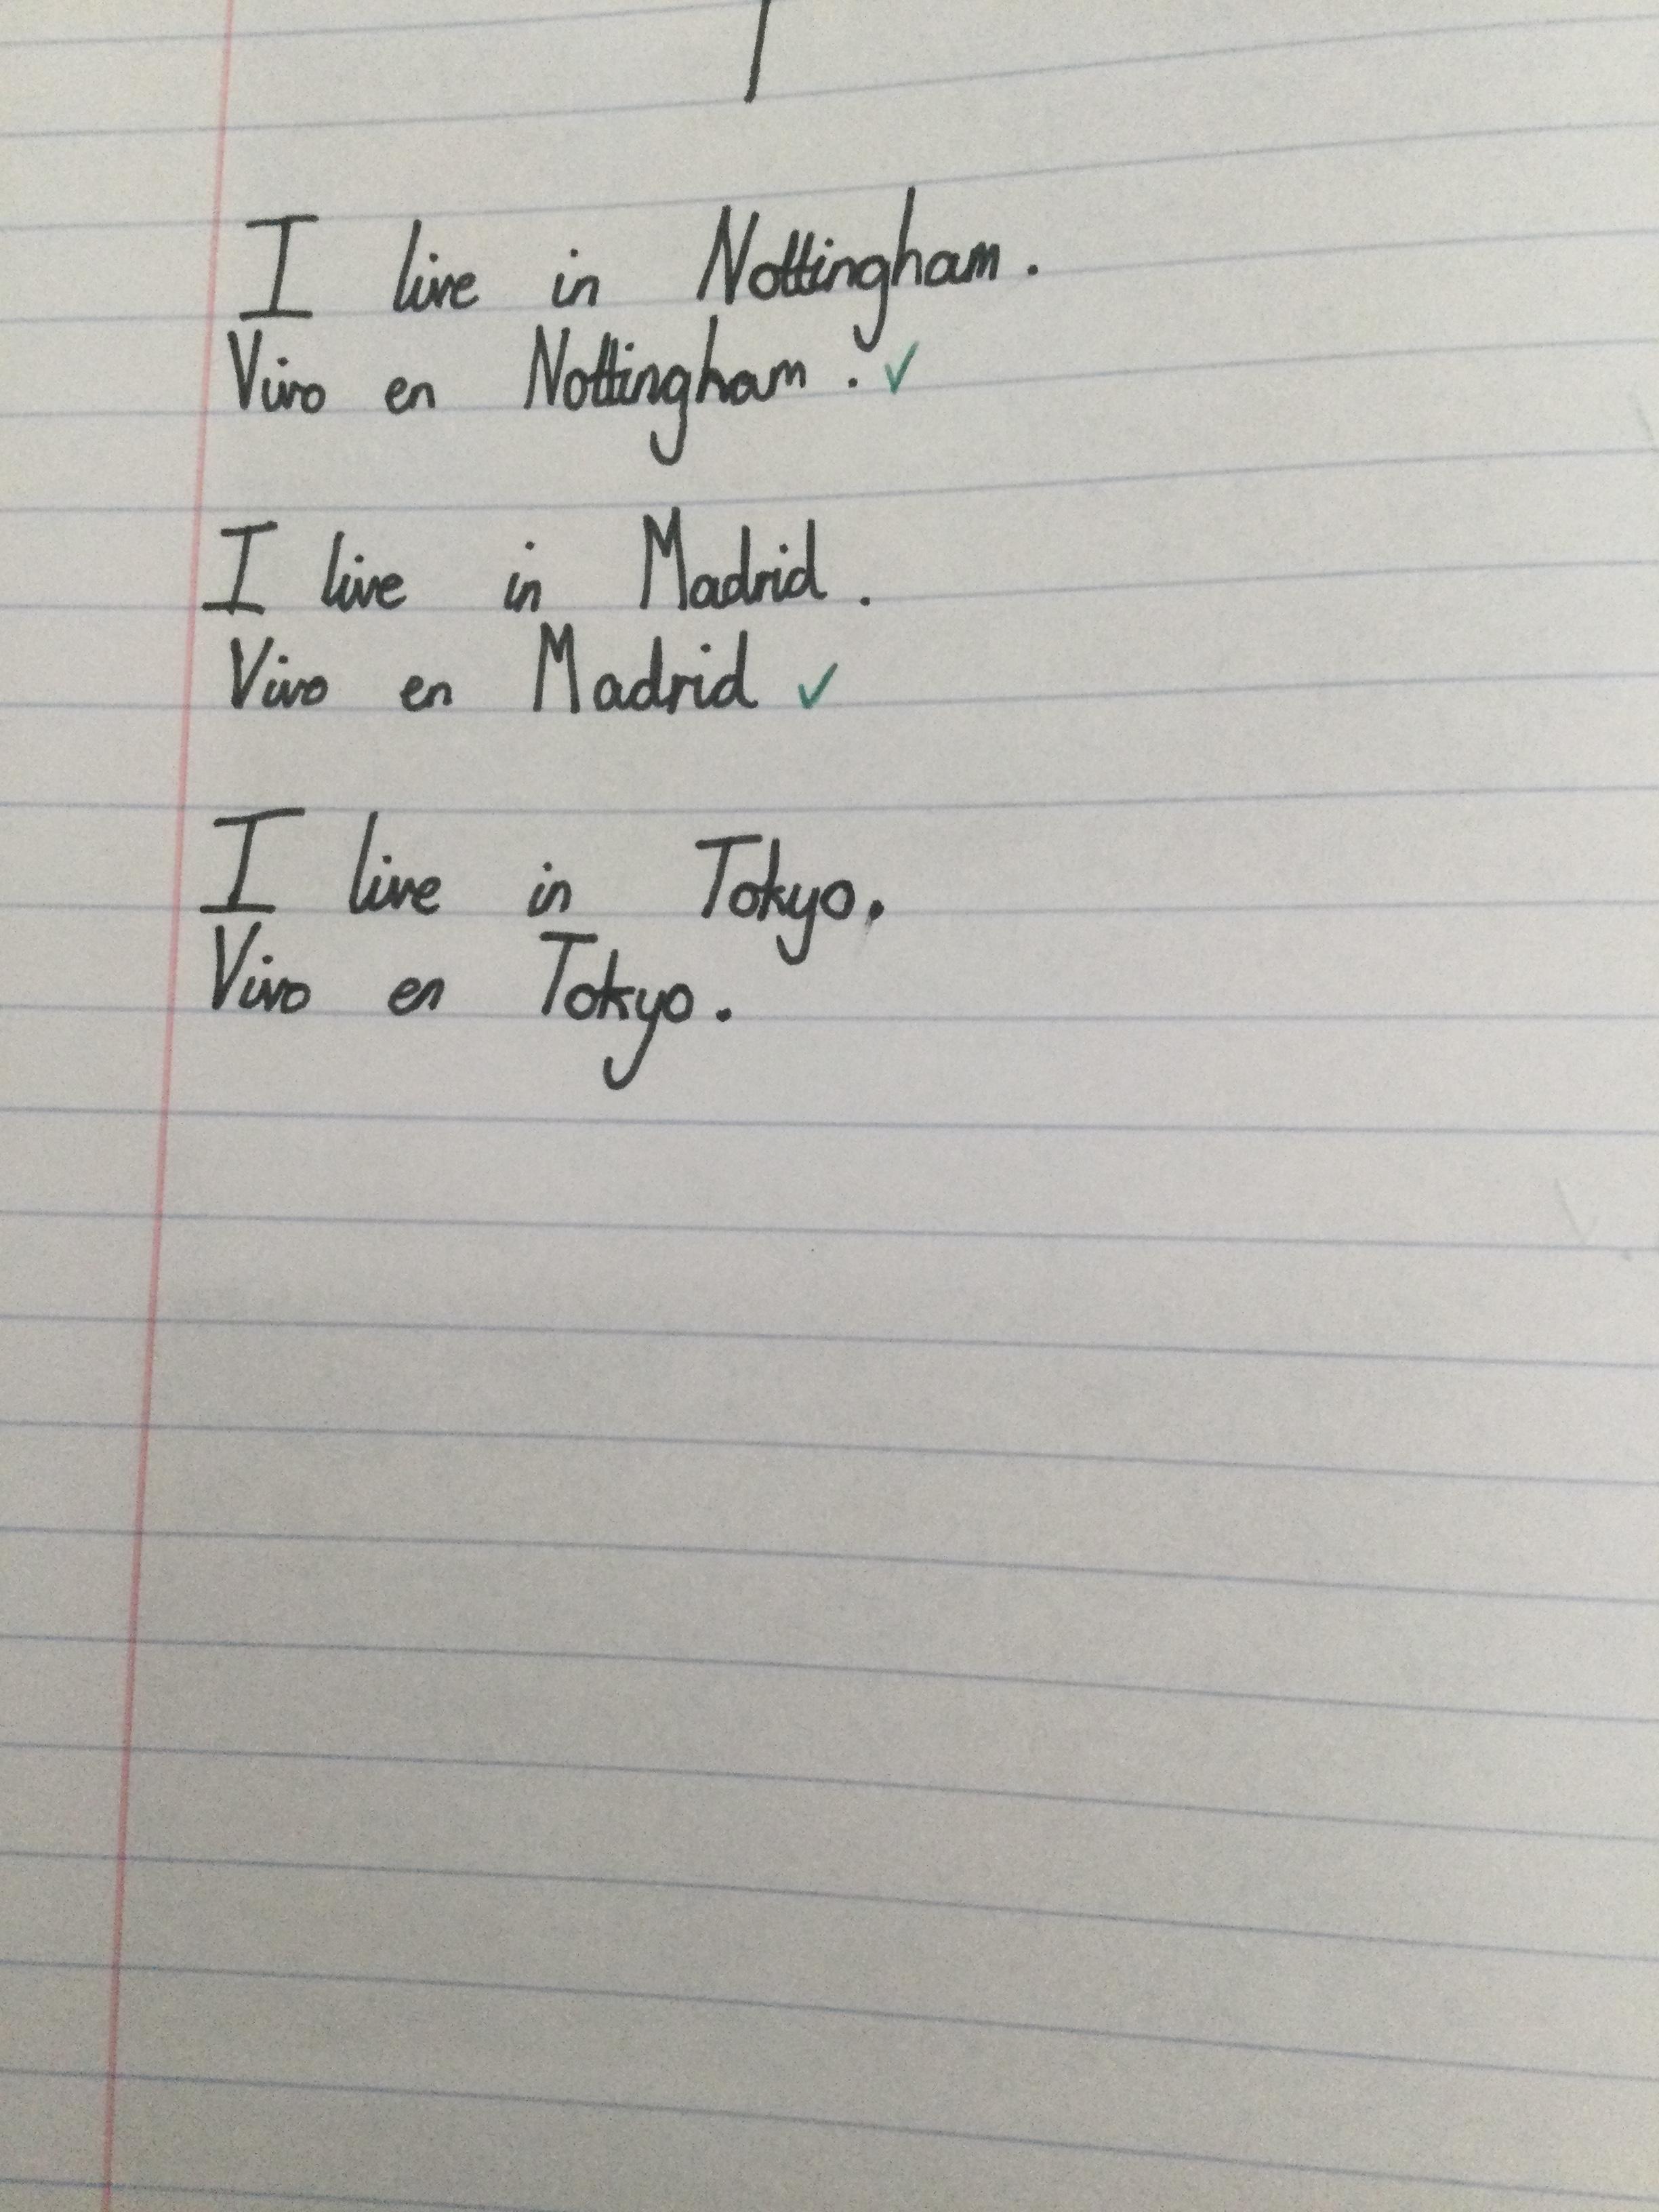 I live in Nottingham.
Vivo en Nottingham. ✓
I live in Madrid.
Vivo en Madrid ✓
I live in Tokyo.
Vivo en Tokyo.